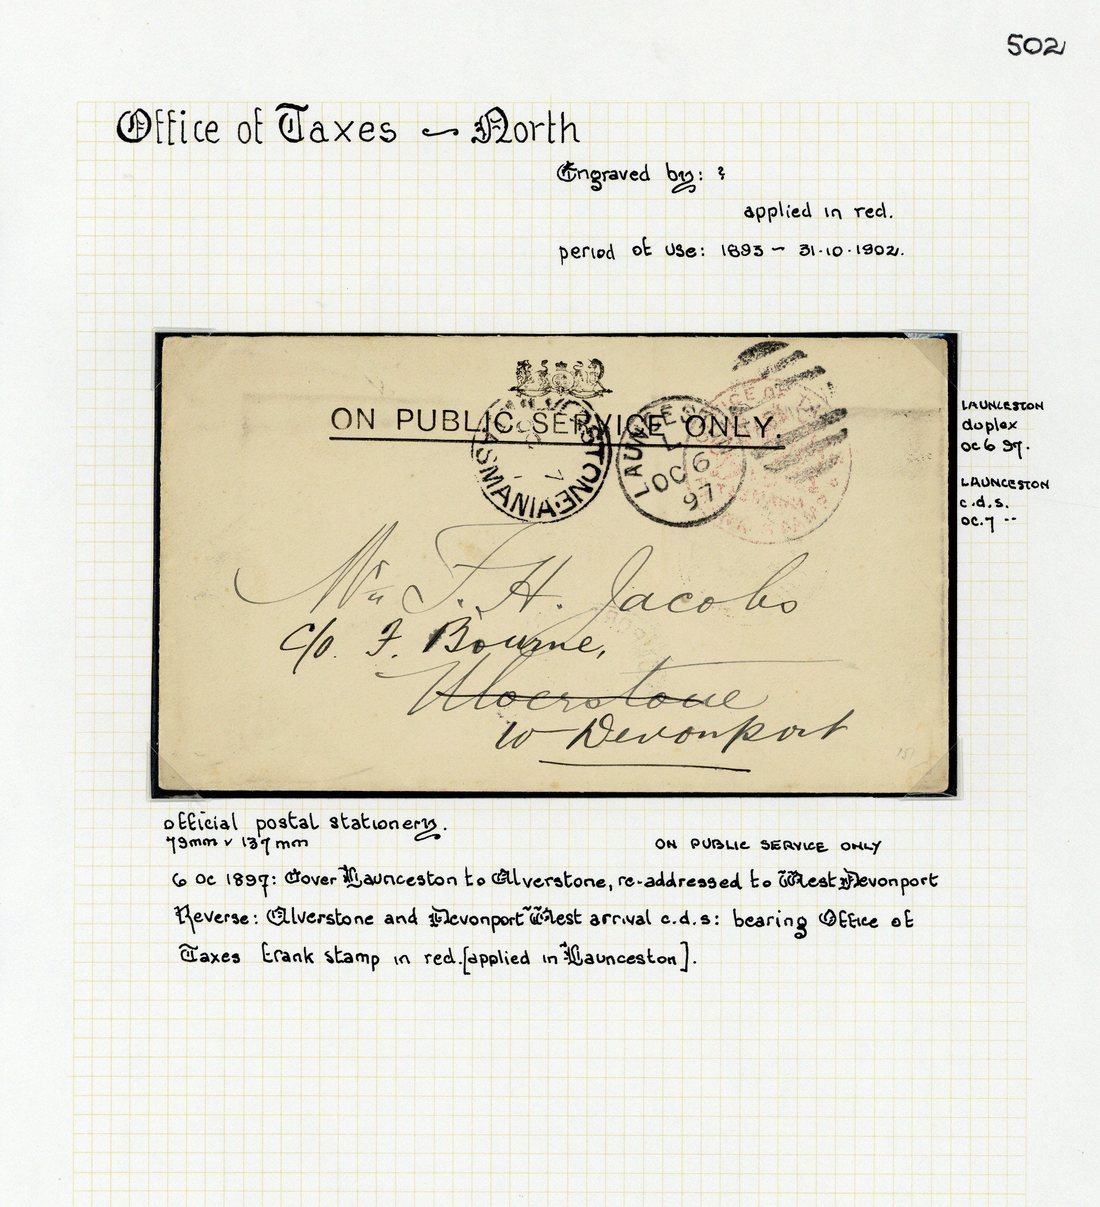 502
Office of Taxes ~ North
Engraved by: ?
applied in red.
period of use: 1893 - 31.10.1902.
ON PUBLIC SERVICE ONLY.
ULVERSTONE TASMANIA
7
LAUNCESTON
L
OC 6
97
OFFICE OF TAXES
TASMANIA
FRANK STAMP
LAUNCESTON
duplex
OC 6 97.
LAUNCESTON
c.d.s.
OC.7 --
Mr T. H. Jacobs
c/o. F. Bourne,
Ulverstone
W Devonport
151
official postal stationery.
79mm x 137mm
ON PUBLIC SERVICE ONLY
6 OC 1897: Cover Launceston to Ulverstone, re-addressed to West Devonport
Reverse: Ulverstone and Devonport West arrival c.d.s: bearing Office of
Taxes frank stamp in red. [applied in Launceston].